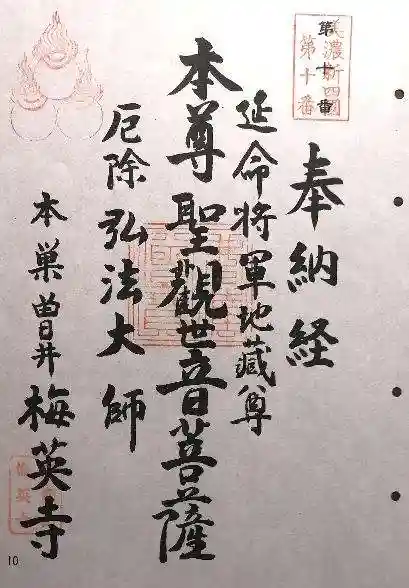 奉納経
延命将軍地蔵尊
本尊聖觀世音菩薩
厄除弘法大師
本巣曽井梅英寺
美濃新四國
第十番
10